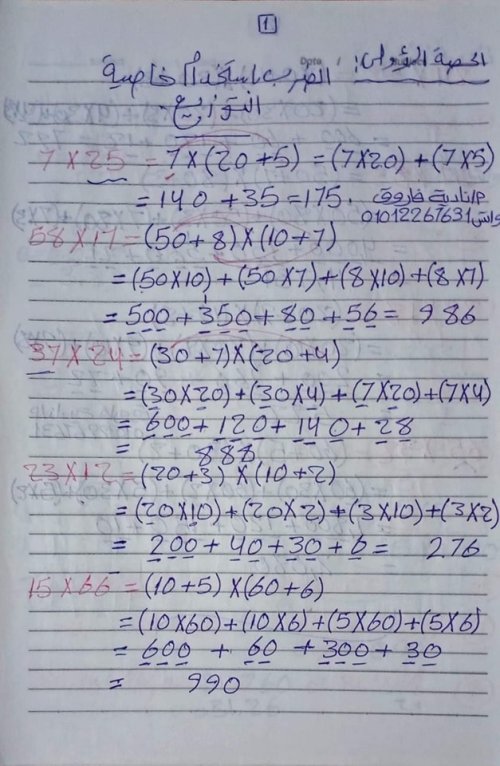 1
الحصة الأولى: الضرب باستخدام خاصية
التوزيع
7 X 25 = 7 X (20 + 5) = (7X20) + (7X5)
= 140 + 35 = 175.
م/نادية فاروق
واتس 01012267631
58 X 17 = (50 + 8) X (10 + 7)
= (50X10) + (50X7) + (8X10) + (8X7)
= 500 + 350 + 80 + 56 = 986
37 X 24 = (30 + 7) X (20 + 4)
= (30X20) + (30X4) + (7X20) + (7X4)
= 600 + 120 + 140 + 28
= 888
23 X 12 = (20+3) X (10 + 2)
= (20X10) + (20X2) + (3X10) + (3X2)
= 200 + 40 + 30 + 6 = 276
15 X 66 = (10 + 5) X (60 + 6)
= (10X60) + (10X6) + (5X60) + (5X6)
= 600 + 60 + 300 + 30
= 990